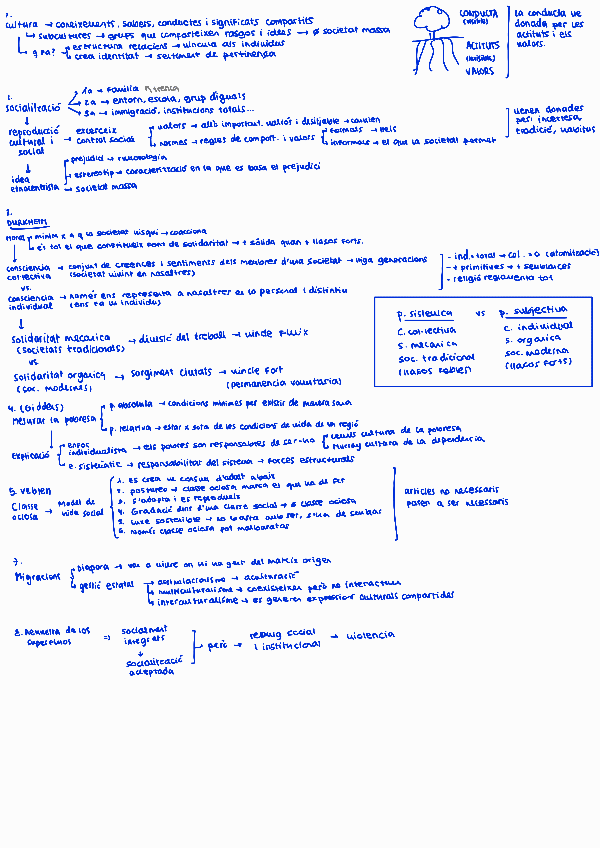 1.
cultura → coneixements, sabers, conductes i significats compartits
↳ subcultures → grups que comparteixen rasgos i idees → ø societat massa
↳ q fa? estructura relacions → vincula als individus
crea identitat → sentiment de pertinença
CONDUCTA
(visible)
ACTITUTS
(invisibles)
VALORS
la conducta ve
donada per les
actituts i els
valors.
1.
socialització
1a → família
2a → entorn, escola, grup d'iguals
3a → immigració, institucions totals...
reproducció
cultural i
social
exerceix → control social
valors → allò important, valiós i desitjable → canvien
normes → regles de comport. i valors
formals → lleis
informals → el que la societat permet
venen donades
per: incertesa,
tradició, habitus
idea
etnocentrista
prejudici → ruborologia
estereotip → característica en la que es basa el prejudici
→ societat massa
2.
DURKHEIM
Moral → mínim x a q la societat visqui → coacciona
↳ és tot el que constitueix font de solidaritat → + sòlida quan + llaços forts.
consciència
col·lectiva → conjunt de creences i sentiments dels membres d'una societat → lliga generacions
(societat vivint en nosaltres)
vs.
consciència
individual → només ens representa a nosaltres es la personal i distintiu
(ens fa un individu)
- ind. = total → col. = 0 (atomització)
- + primitives → + semblances
- religió reglamenta tot
solidaritat mecànica → divisió del treball → vincle fluix
(societats tradicionals)
vs
solidaritat orgànica → sorgiment ciutats → vincle fort
(soc. modernes) (permanència voluntària)
p. sistèmica vs p. subjectiva
c. col·lectiva c. individual
s. mecànica s. orgànica
soc. tradicional soc. moderna
(llaços febles) (llaços forts)
4. (Giddens)
Mesurar la pobresa
p. absoluta → condicions mínimes per existir de manera sana
p. relativa → estar x sota de les condicions de vida de la regió
Explicació
enfoc
individualista → els pobres son responsables de ser-ho
Lewis cultura de la pobresa
Murray cultura de la dependència
e. sistemàtic → responsabilitat del sistema → forces estructurals
5. Veblen
Classe
ociosa → Model de
vida social
1. es crea un consum d'adalt abaix
2. postureo → classe ociosa marca el que ha de ser
3. s'adapta i es reprodueix
4. Gradació dins d'una classe social → ø classe ociosa
5. Luxe sostenible → no basta amb ser, s'han de semblar
6. Només classe ociosa pot malbaratar
articles no necessaris
passen a ser necessaris
7.
Migracions
Diàspora → vas a viure on hi ha gent del mateix origen
gestió estatal
assimilacionisme → aculturació
multiculturalisme → coexisteixen però no interactuen
interculturalisme → es generen expressions culturals compartides
8. Remuntra de los
superfluos ⇒ socialment
integrats
↓
socialització
acceptada
però → rebuig social
i institucional → violència